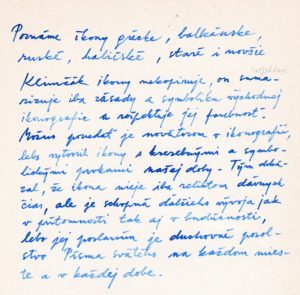 Poznáme ikony grécke, balkánske,
ruské, haličské, staré i novšie
Klimčák ikony nekopíruje, on suma-
rizuje iba zásady a symboliku východnej
ikonografie a rešpektuje jej farebnosť.
Možno povedať je novátorom v ikonografii,
lebo vytvoril ikony s kresebnými a symbo-
lickými prvkami našej doby. Tým doká-
zal, že ikona nieje iba reliktom dávnych
čias, ale je schopná ďalšieho vývoja jak
v prítomnosti tak aj v budúcnosti,
lebo jej poslaním je duchovné posol-
stvo Písma svätého na každom mies-
te a v každej dobe.